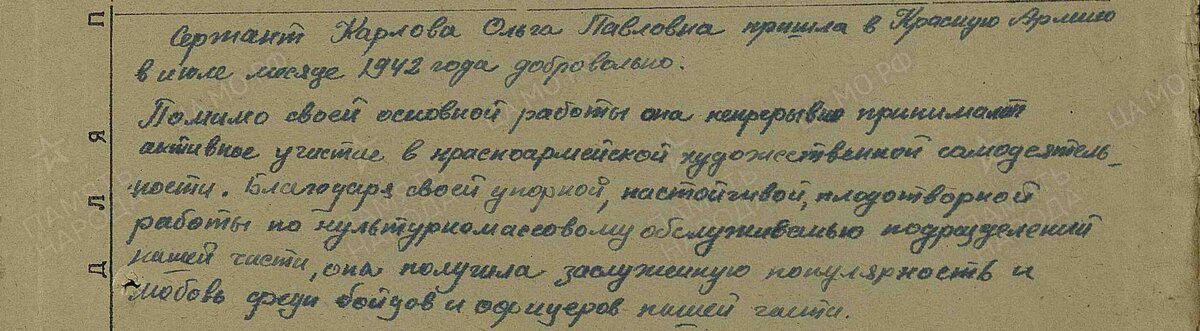 Сержант Карлова Ольга Павловна пришла в Красную Армию
в июле месяце 1942 года добровольно.
Помимо своей основной работы она непрерывно принимает
активное участие в красноармейской художественной самодеятель-
ности. Благодаря своей упорной, настойчивой, плодотворной
работы по культурномассовому обслуживанью подразделений
нашей части, она получила заслуженную популярность и
любовь среди бойцов и офицеров нашей части.
П
Я
Л
Д